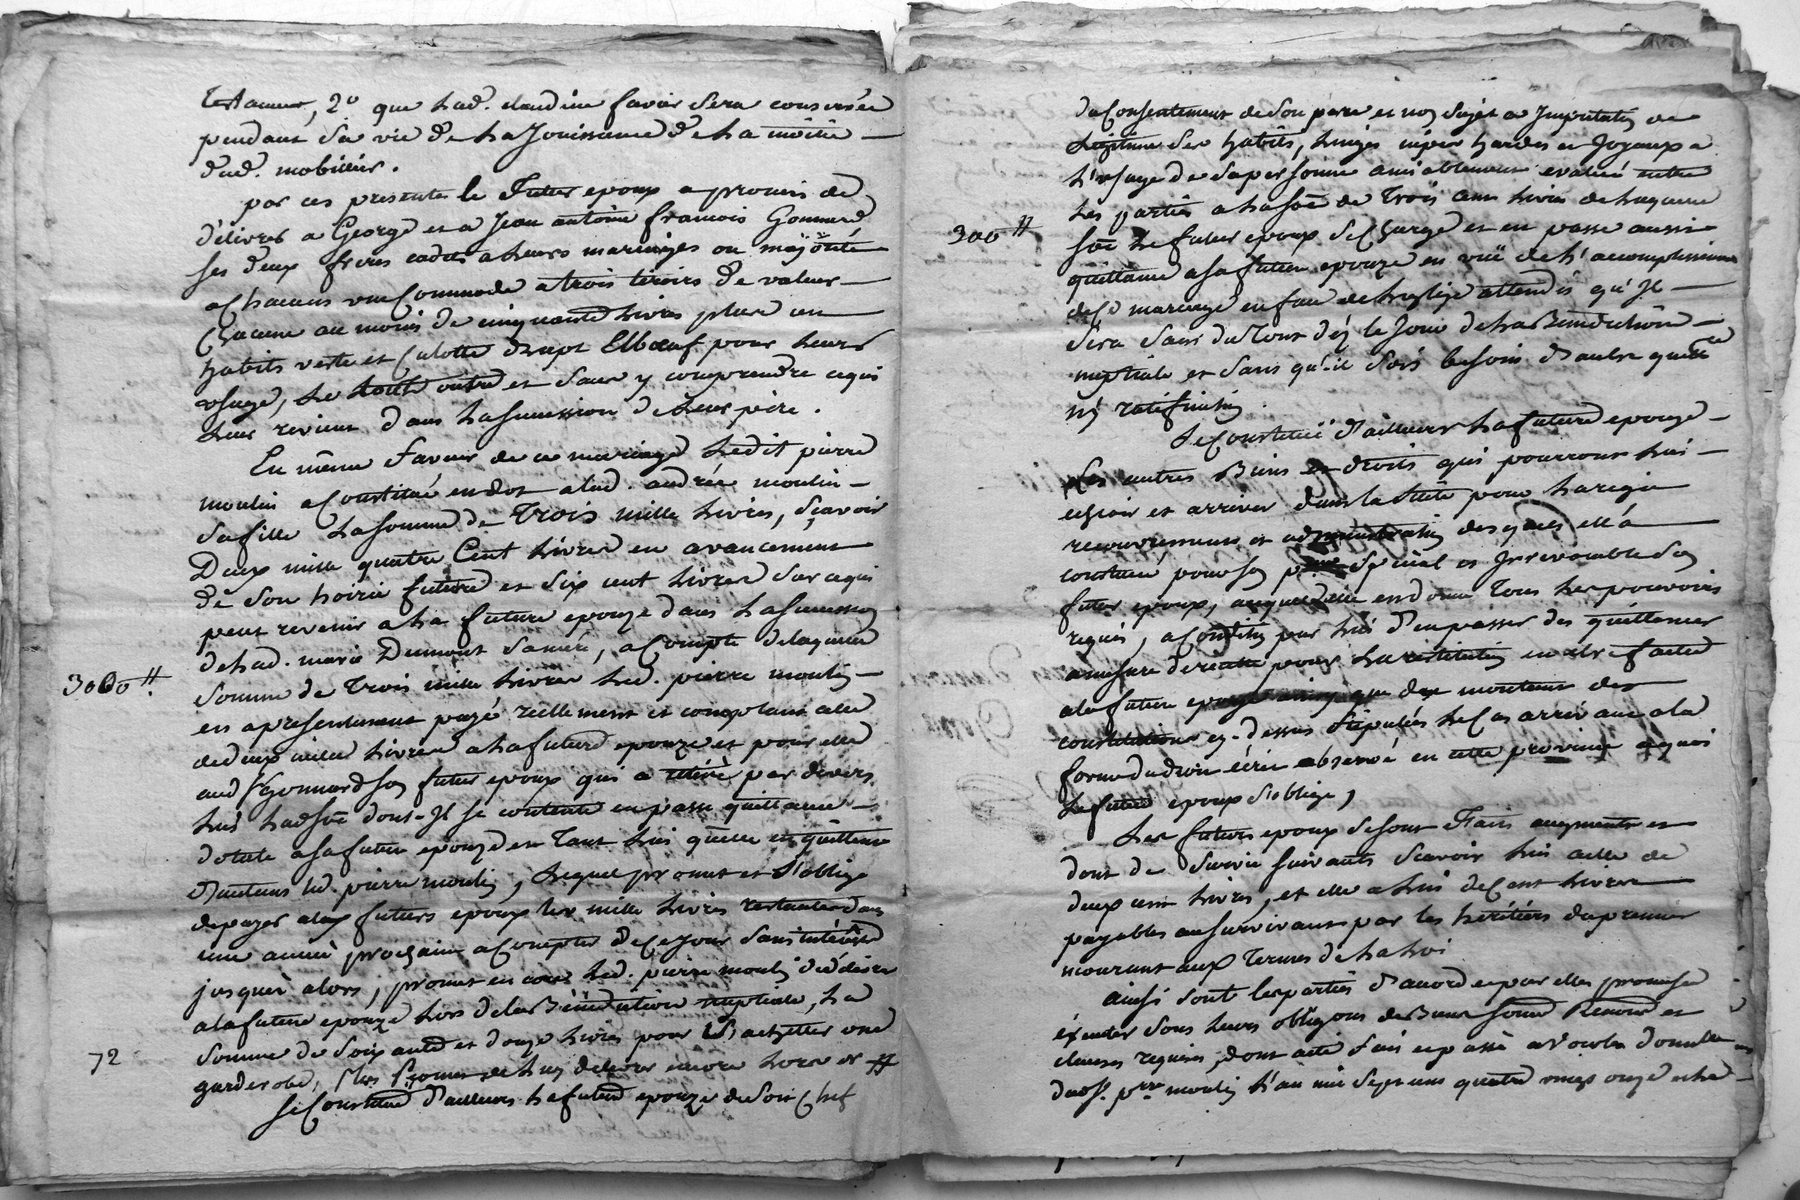 testament, 2º que lad. claudine favier sera conservée
pendant sa vie de la Jouissance de la moitié
dud. mobilier.
par ces presente le Futur epoux a promis de
délivrer a George et a Jean antoine francois Gonnard
ses deux freres cadets a leurs mariages ou majorité
a chacuns une Commode a trois tiroirs de valeur
chacune au moins de cinquante livres plus un
habits veste et Culotte drapt Elbœuf pour leurs
usage, le tout outre et sans y comprendre cequi
leur revient dans la succession de leur père.
En même faveur de ce mariage ledit pierre
moulin a Constitué en dot alad. andrée moulin
sa fille la somme de Trois mille livres, sçavoir
Deux mille quatre Cent livres en avancement
de son hoirie future et six cent livres sur cequi
peut revenir a la future epouze dans la succession
de lad. marie Dumont sa mère, a Compte de laquelle
3000 ₶.
somme de trois mille livres led. pierre moulin
en a presentement payé réellement et comptant celle
de deux mille livres a la future epouze et pour elle
aud. Sr Gonnard son futur epoux qui a retiré par devers
lui lad. somme dont Il se contente en passe quittance
dotale a sa future epouze en Tant lui qu'elle en quittent
d'autant led. pierre moulin, lequel promet et s'oblige
de payer aux futurs epoux les mille livres restantes dans
une année prochaine a Compter de ce Jour sans intérêts
jusqu'à alors, promet en outre led. pierre moulin de délivrer
a la future epouze lors de la Bénédiction nuptiale, la
72
somme de soixante et douze livres pour s'achetter une
garderobe,
se Constitue d'ailleurs la future epouze de son Chef
du Consentement de son pere et non sujet a Imputation de
légitime ses habits, linges hardes et Joyaux a
l'usage de sa personne amiablement evalué entre
les parties a la sôe de trois cent livres de laquelle
300 ₶
sôe le futur epoux se Charge et en passe aussi
quittance a sa future epouze en vuë de l'accomplissement
de ce mariage en face de l'eglize attendu qu'Il
sera saisi du Tout dez le Jour de la Bénédiction
nuptiale et sans qu'il soit besoin d'autre quittance
ny ratification.
se Constituë d'ailleurs la future epouze
les autres Biens et droits qui pourront lui
echoir et arriver dans la suitte pour la régie
recouvrement et administration desquels elle a
constitué pour son special et Irrevocable son
futur epoux, auquel elle en donne Tous les pouvoirs
requis, a Condition par lui d'en passer des quittances
a mesure de recette pour la restitution en etre faitte
a la future epouze ainsy que des montant des
constitutions cy-dessus stipulées le Cas arrivant a la
forme du droit écrit observé en cette province a quoi
le futur epoux s'oblige,
Les futurs epoux se sont Faits augments et
dont de survie suivants sçavoir lui a elle de
deux cent livres, et elle a lui de Cent livres
payables au survivant par les héritiers du premier
mourant aux Termes de la Loi
ainsi sont les parties d'accord et par elles promis
éxécuter sous leurs obligons de Biens soumd Renond et
clauses requises, dont acte fait et passé domicile
dud. Sr. prre moulin l'an mil sept cens quatre vingt onze et le